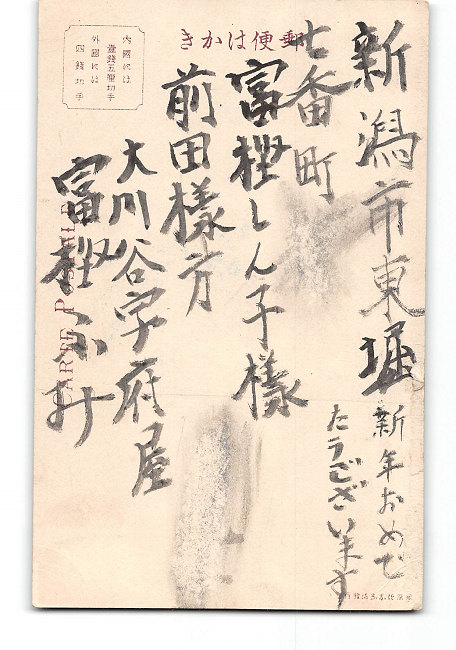 郵便はかき
内國には
壹錢五厘切手
外國には
四錢切手
CARTE POSTALE
新潟市東堀
七番町
前田様方
富樫しん子様
大川谷字府屋
富樫ふみ
新年おめで
たうございます